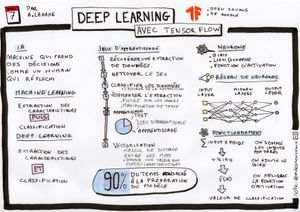 7
PAR A. LAMARE
DEEP LEARNING
AVEC TENSOR FLOW
OPEN SOURCE
DE GOOGLE
IA
MACHINE QUI PREND
DES DÉCISIONS
COMME UN HUMAIN
QUI RÉFLÉCHI
MACHINE LEARNING
EXTRACTION DES
CARACTÉRISTIQUES
PUIS
CLASSIFICATION
DEEP LEARNING
EXTRACTION DES
CARACTÉRISTIQUES
ET
CLASSIFICATION
JEUX D'APPRENTISSAGE
RÉCUPÉRER / EXTRACTION
DE DONNÉES
NETTOYER LE JEU
CLASSIFIER LES DONNÉES
ORGANISER L'EXTRACTION
APPRENTISSAGE
TEST
JEU D'APPRENTISSAGE
APPRENTISSAGE
VECTORISATION
CALCUL DE DISTANCE
ENTRE LES MOTS
90%
DU TEMS CONSACRÉ
À LA PRÉPARATION
DU MODÈLE
NEURONE
BIAIS
FONCTION
D'ACTIVATION
RÉSEAU DE NEURONES
INPUT
LAYER
HIDDEN
LAYER
OUTPUT
LAYER
FONCTIONNEMENT
INPUT X POIDS
+ BIAIS
F(X)
ON SOMME
LES INPUTS
PONDÉRÉS
ON AJOUTE LE
BIAIS
ON APPLIQUE
LA FONCTION
D'ACTIVATION
VALEUR DE CLASSIFICATION